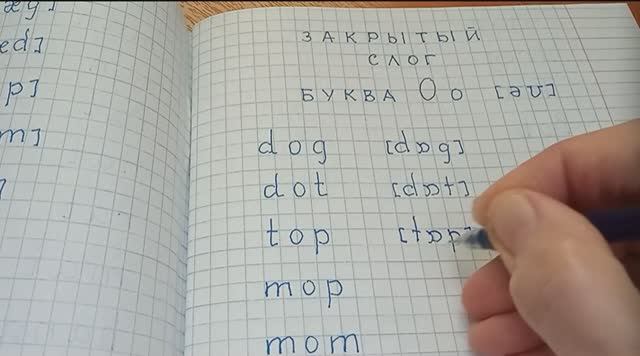 æg]
ed]
p]
m]
]
ЗАКРЫТЫЙ
СЛОГ
БУКВА О о
dog [dɒg]
dot [dɒt]
top [tɒp]
mop
mom